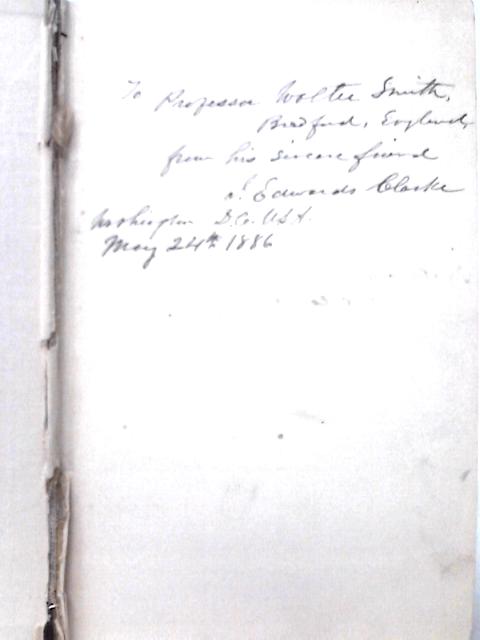 To Professor Walter Smith,
Bradford, England,
from his sincere friend
I. Edwards Clarke
Washington D.C. U.S.A.
May 24th 1886